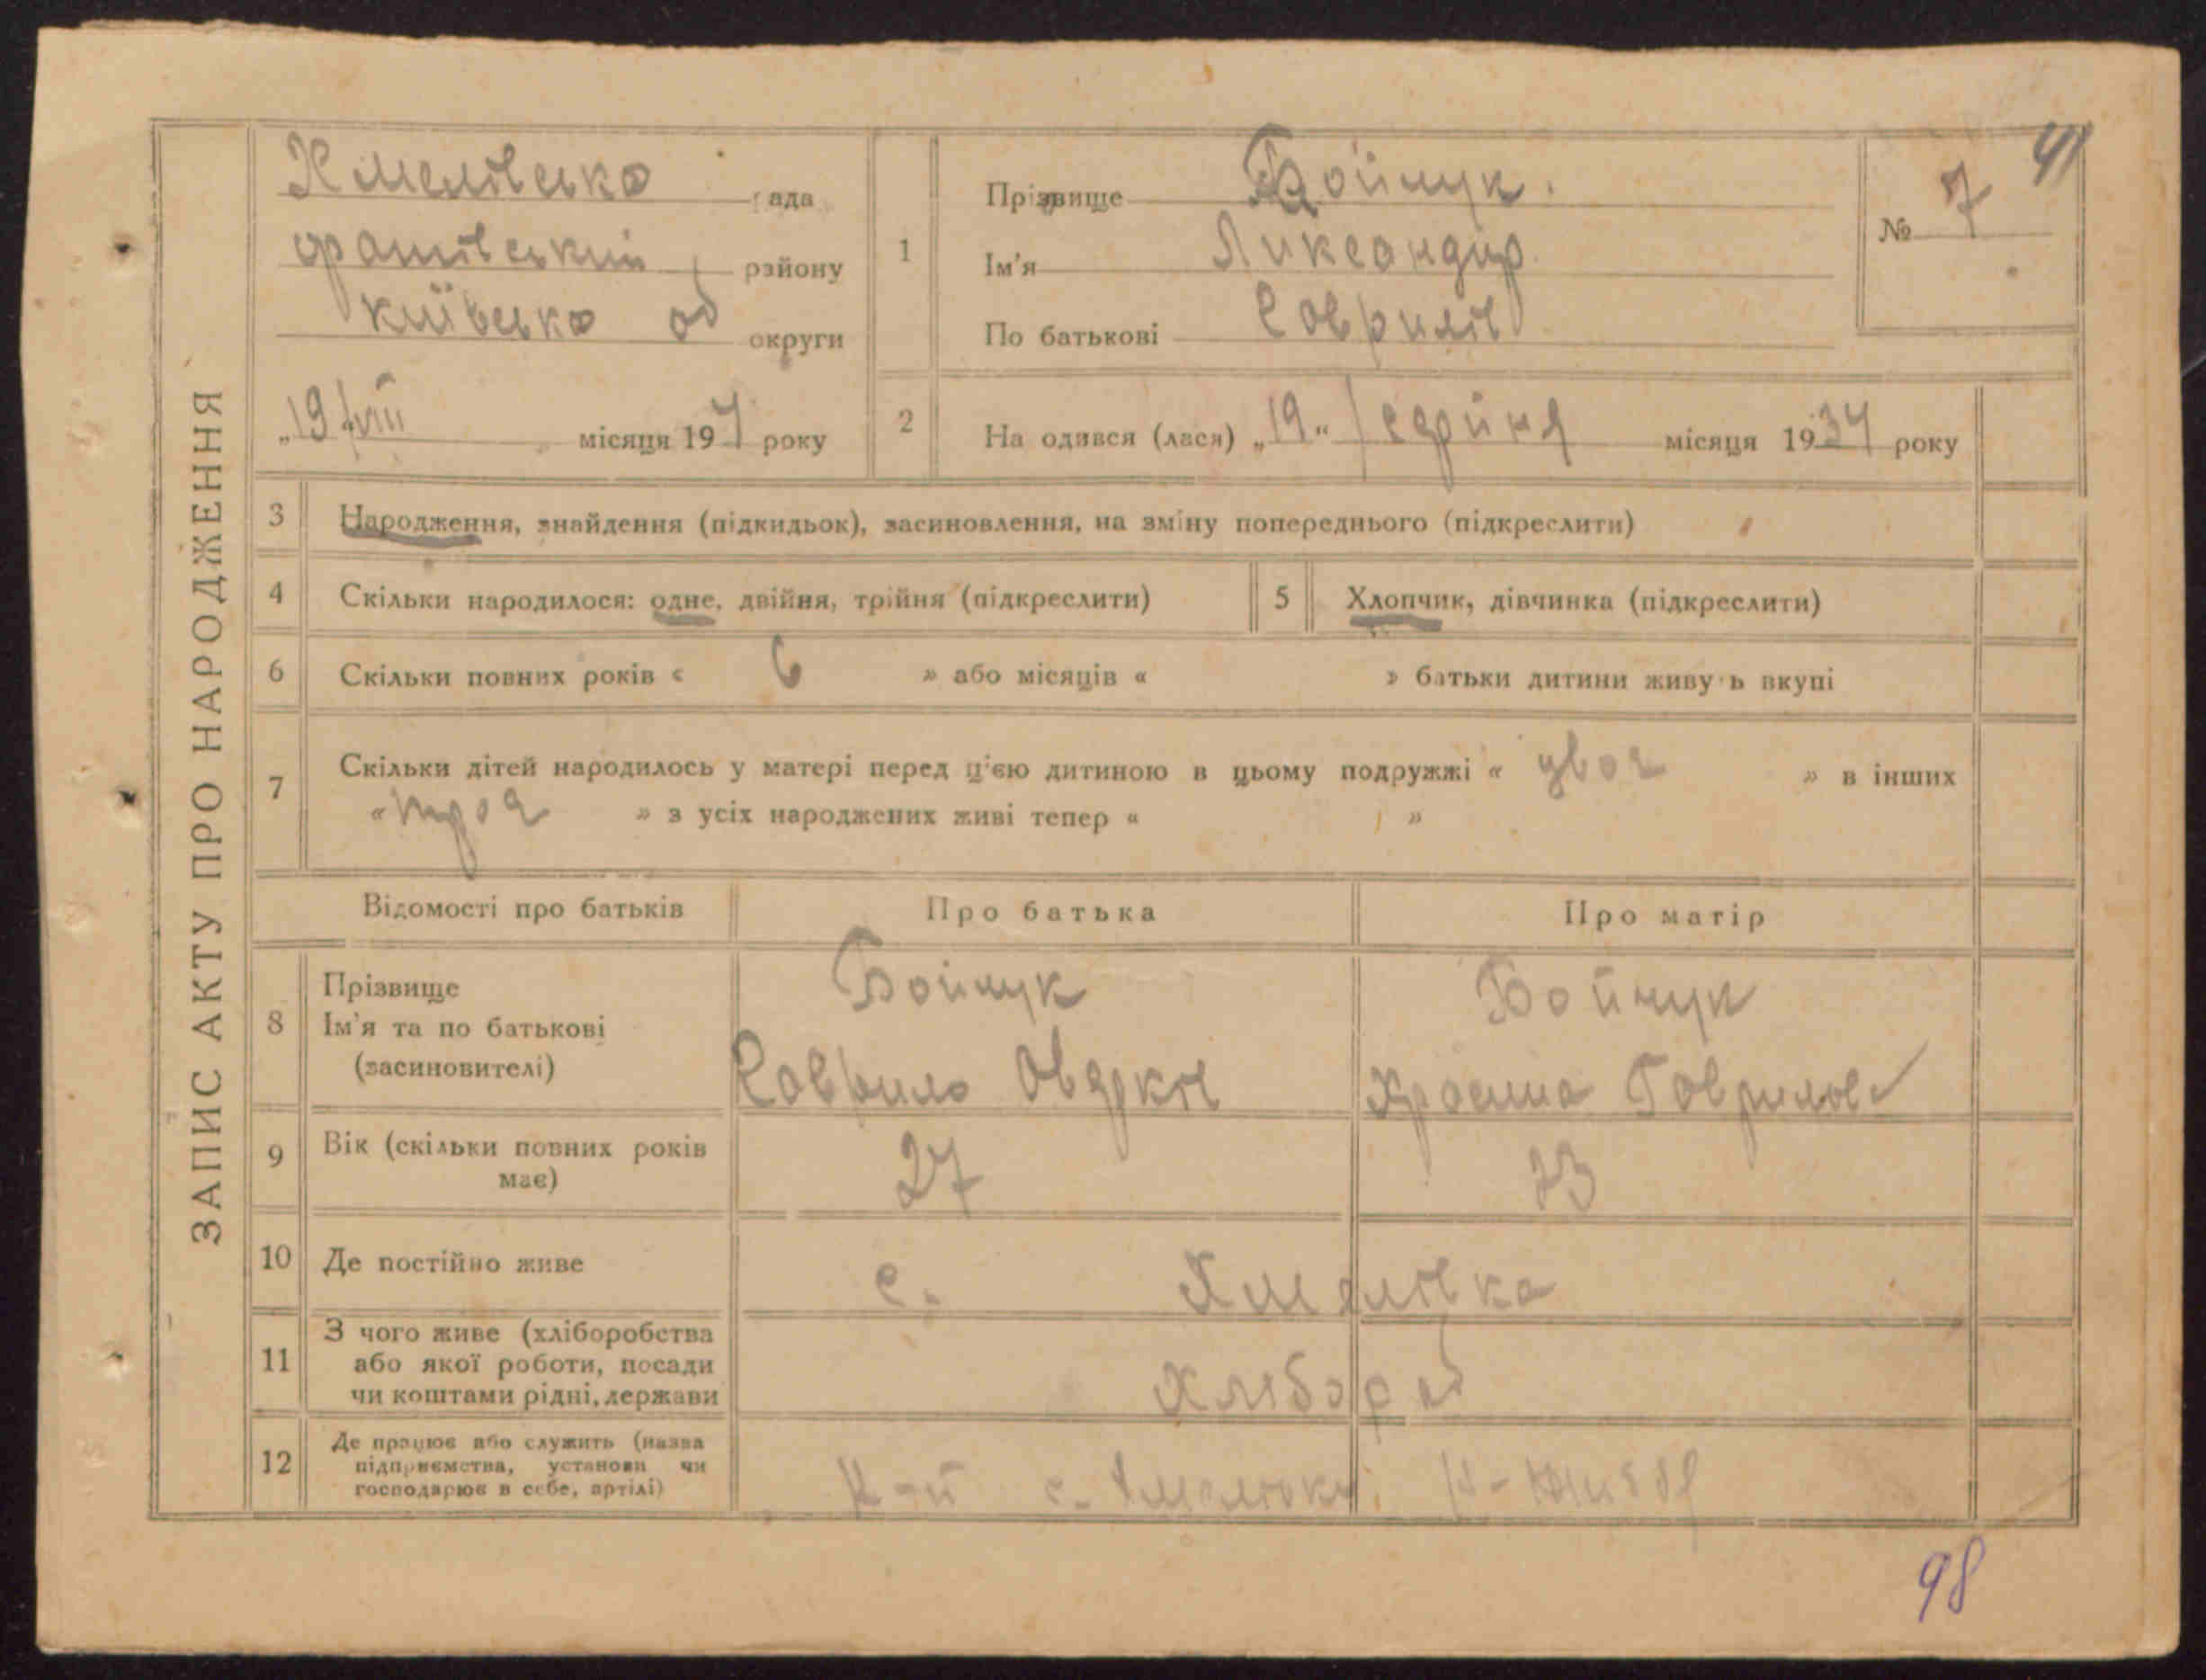 ЗАПИС АКТУ ПРО НАРОДЖЕННЯ
Хмелівсько рада
Фашівський району
київсько об округи
„19 /VIII місяця 1934 року
1 Прізвище Бойчук.
Ім'я Ликсандир
По батькові Говрилів
№ 7
41
2 На одився (лася) „19“ серпня місяця 1934 року
3 Народження, знайдення (підкидьок), засиновлення, на зміну попереднього (підкреслити)
4 Скільки народилося: одне, двійня, трійня (підкреслити)
5 Хлопчик, дівчинка (підкреслити)
6 Скільки повних років « 6 » або місяців « » батьки дитини живуть вкупі
7 Скільки дітей народилось у матері перед ц'єю дитиною в цьому подружжі « двоє » в інших
« троє » з усіх народжених живі тепер « »
Відомості про батьків Про батька Про матір
8 Прізвище
Ім'я та по батькові
(засиновителі)
Бойчук
Говрило Овдків
Бойчук
Говрилов
9 Вік (скільки повних років
має)
27 23
10 Де постійно живе с. Хмелівка
11 З чого живе (хліборобства
або якої роботи, посади
чи коштами рідні, держави
хлібороб
12 Де працює або служить (назва
підприємства, установи чи
господарює в себе, артілі)
с. Хмелівка
98